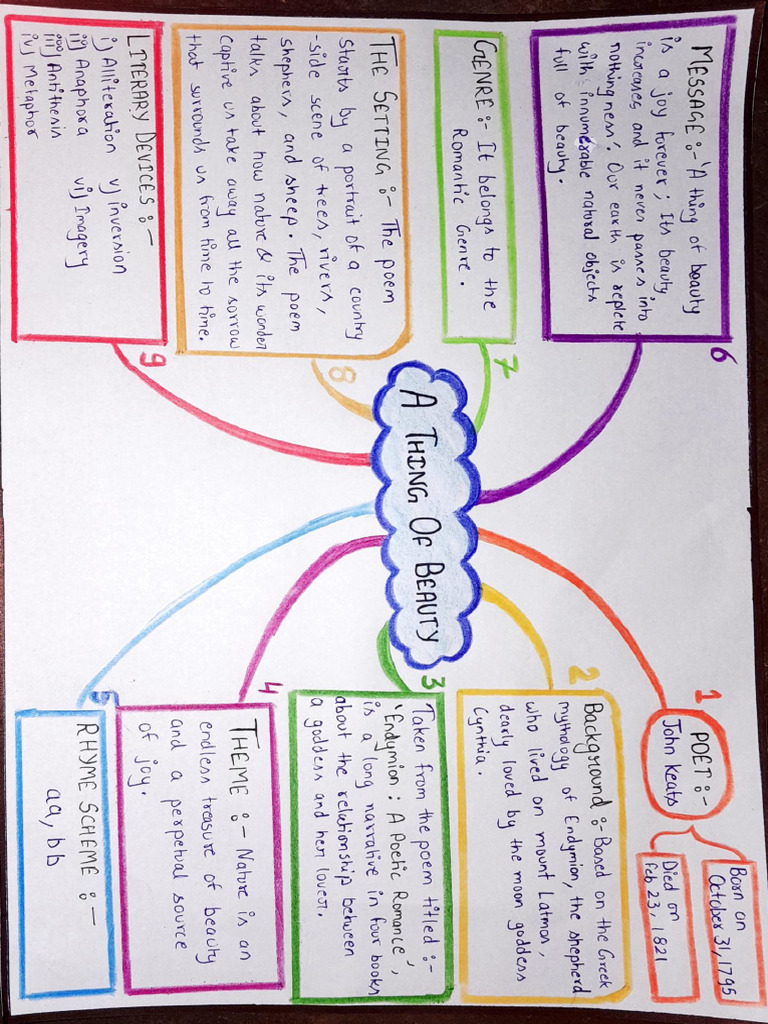 A THING OF BEAUTY
1
POET :-
John Keats
Born on
October 31, 1795
Died on
Feb 23, 1821
2
Background :- Based on the Greek
mythology of Endymion, the shepherd
who lived on mount Latmos,
dearly loved by the moon goddess
Cynthia.
3
Taken from the poem titled :-
'Endymion : A Poetic Romance',
is a long narrative in four books
about the relationship between
a goddess and her lover.
4
THEME :- Nature is an
endless treasure of beauty
and a perpetual source
of joy.
5
RHYME SCHEME :-
aa, bb
6
MESSAGE :- 'A thing of beauty
is a joy forever; Its beauty
increases and it never passes into
nothingness'. Our earth is replete
with innumerable natural objects
full of beauty.
7
GENRE :- It belongs to the
Romantic Genre.
8
THE SETTING :- The poem
starts by a portrait of a country
-side scene of trees, rivers,
shephers, and sheep. The poem
talks about how nature & its wonder
captive us take away all the sorrow
that surrounds us from time to time.
9
LITERARY DEVICES :-
i) Alliteration v) inversion
ii) Anaphora vi) Imagery
iii) Antithesis
iv) Metaphor